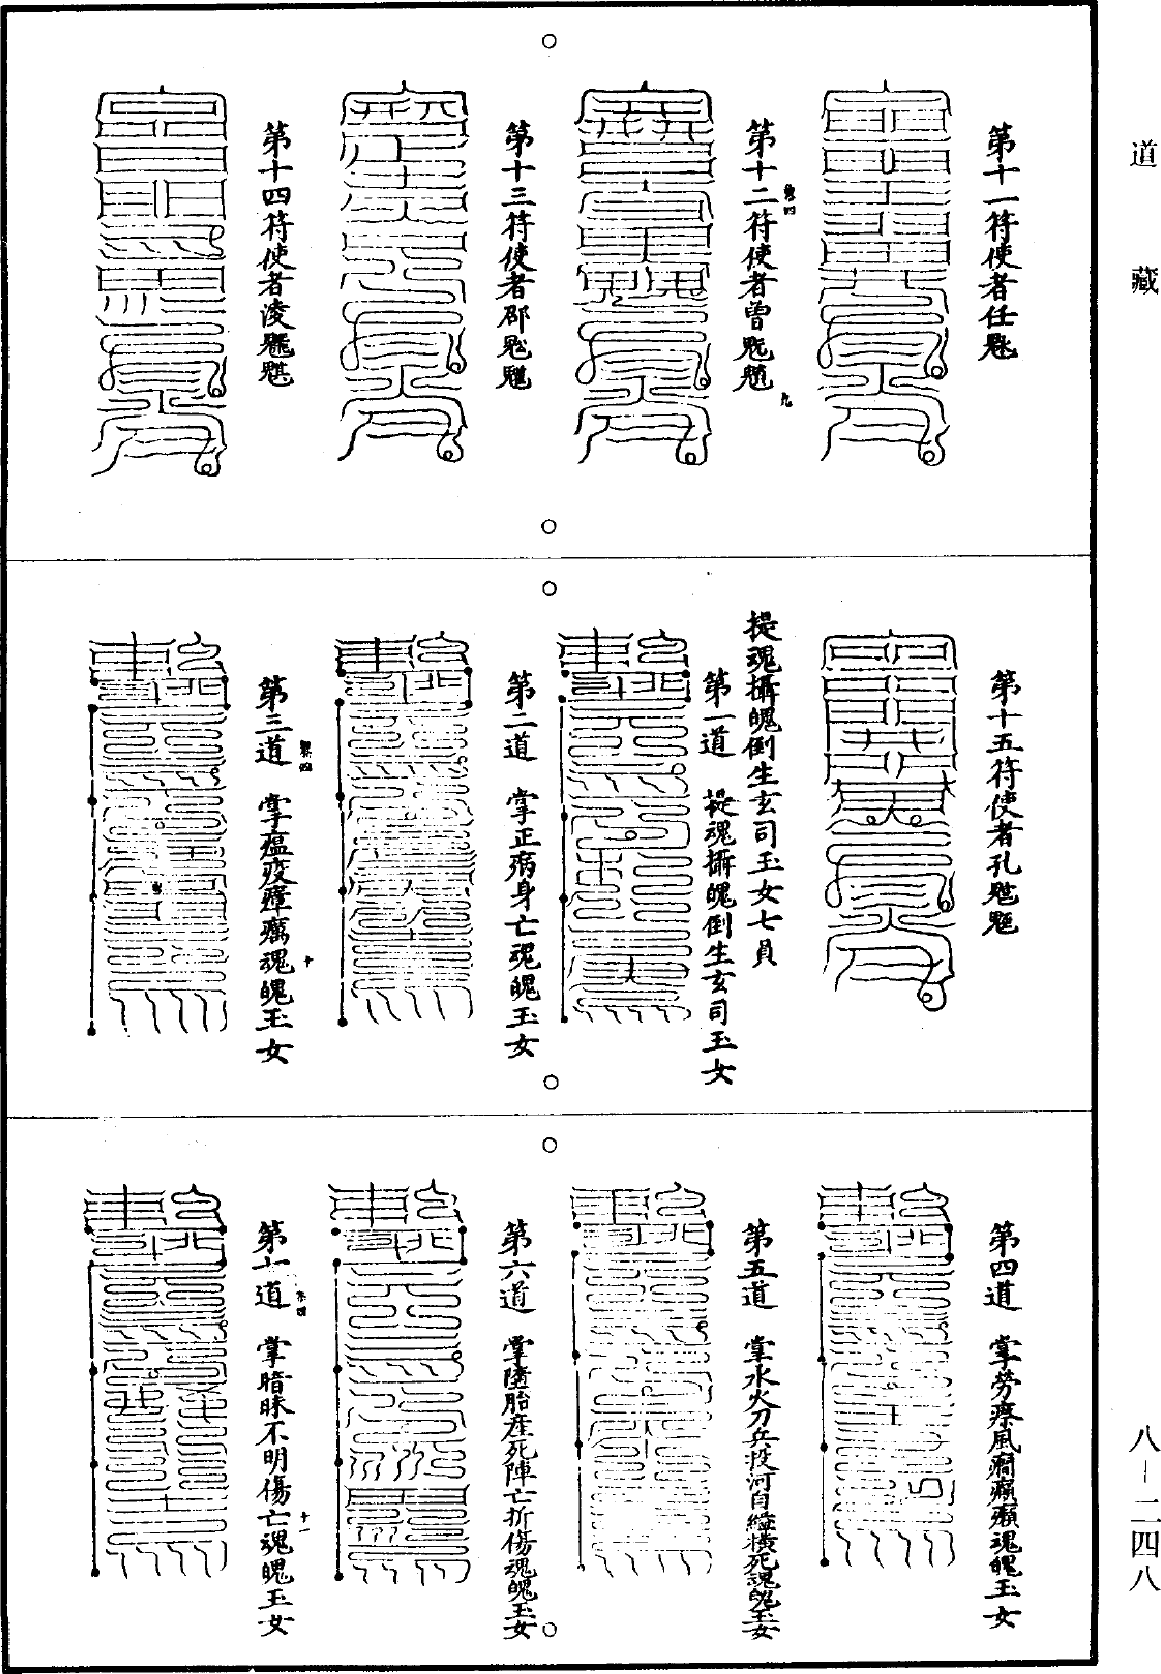 道藏
第十一符使者任魀
第十二符使者曾
第十三符使者
第十四符使者凌
第十五符使者孔
提魂攝魄倒生玄司玉女七員
第一道　提魂攝魄倒生玄司玉女
第二道　掌正病身亡魂魄玉女
第三道　掌瘟疫瘴癘魂魄玉女
第四道　掌勞瘵風癇癲魂魄玉女
第五道　掌水火刀兵投河自縊橫死魂魄玉女
第六道　掌墮胎產死陣亡折傷魂魄玉女
第七道　掌暗昧不明傷亡魂魄玉女
八—二四八